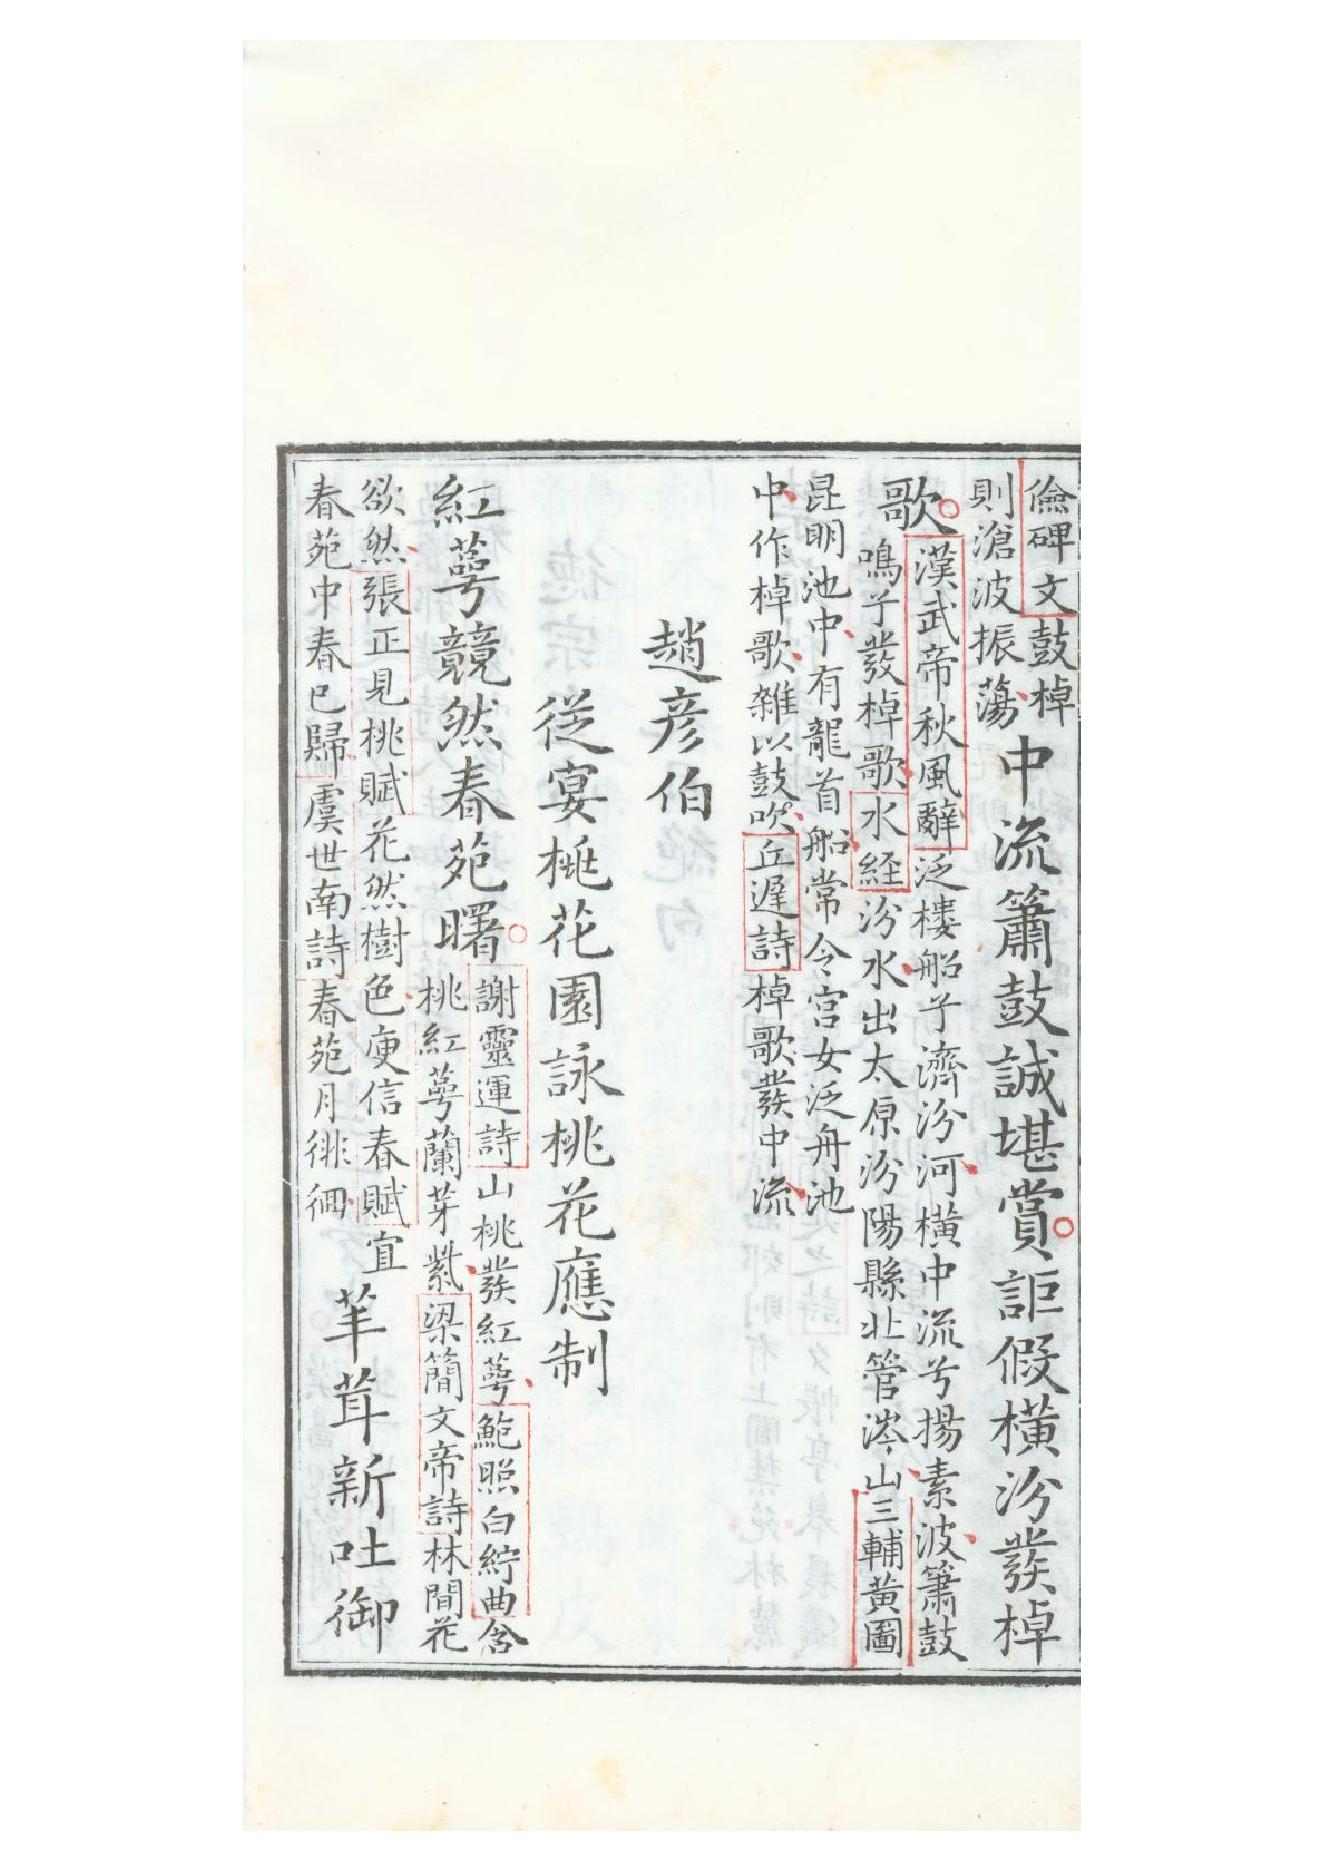 儉碑文鼓棹
則滄波振蕩
中流簫鼓誠堪賞詎假橫汾發棹
歌
漢武帝秋風辭泛楼船兮濟汾河橫中流兮揚素波簫鼓
鳴兮發棹歌水経汾水出太原汾陽縣北管涔山三輔黃圖
昆明池中有龍首船常令宮女泛舟池
中作棹歌雜以鼓吹丘遲詩棹歌發中流
趙彥伯
從宴桃花園詠桃花應制
紅萼競然春苑曙
謝靈運詩山桃發紅萼鮑照白紵曲含
桃紅萼蘭芽紫梁簡文帝詩林間花
欲然張正見桃賦花然樹色庾信春賦宜
春苑中春已歸虞世南詩春苑月徘徊
茸新吐御